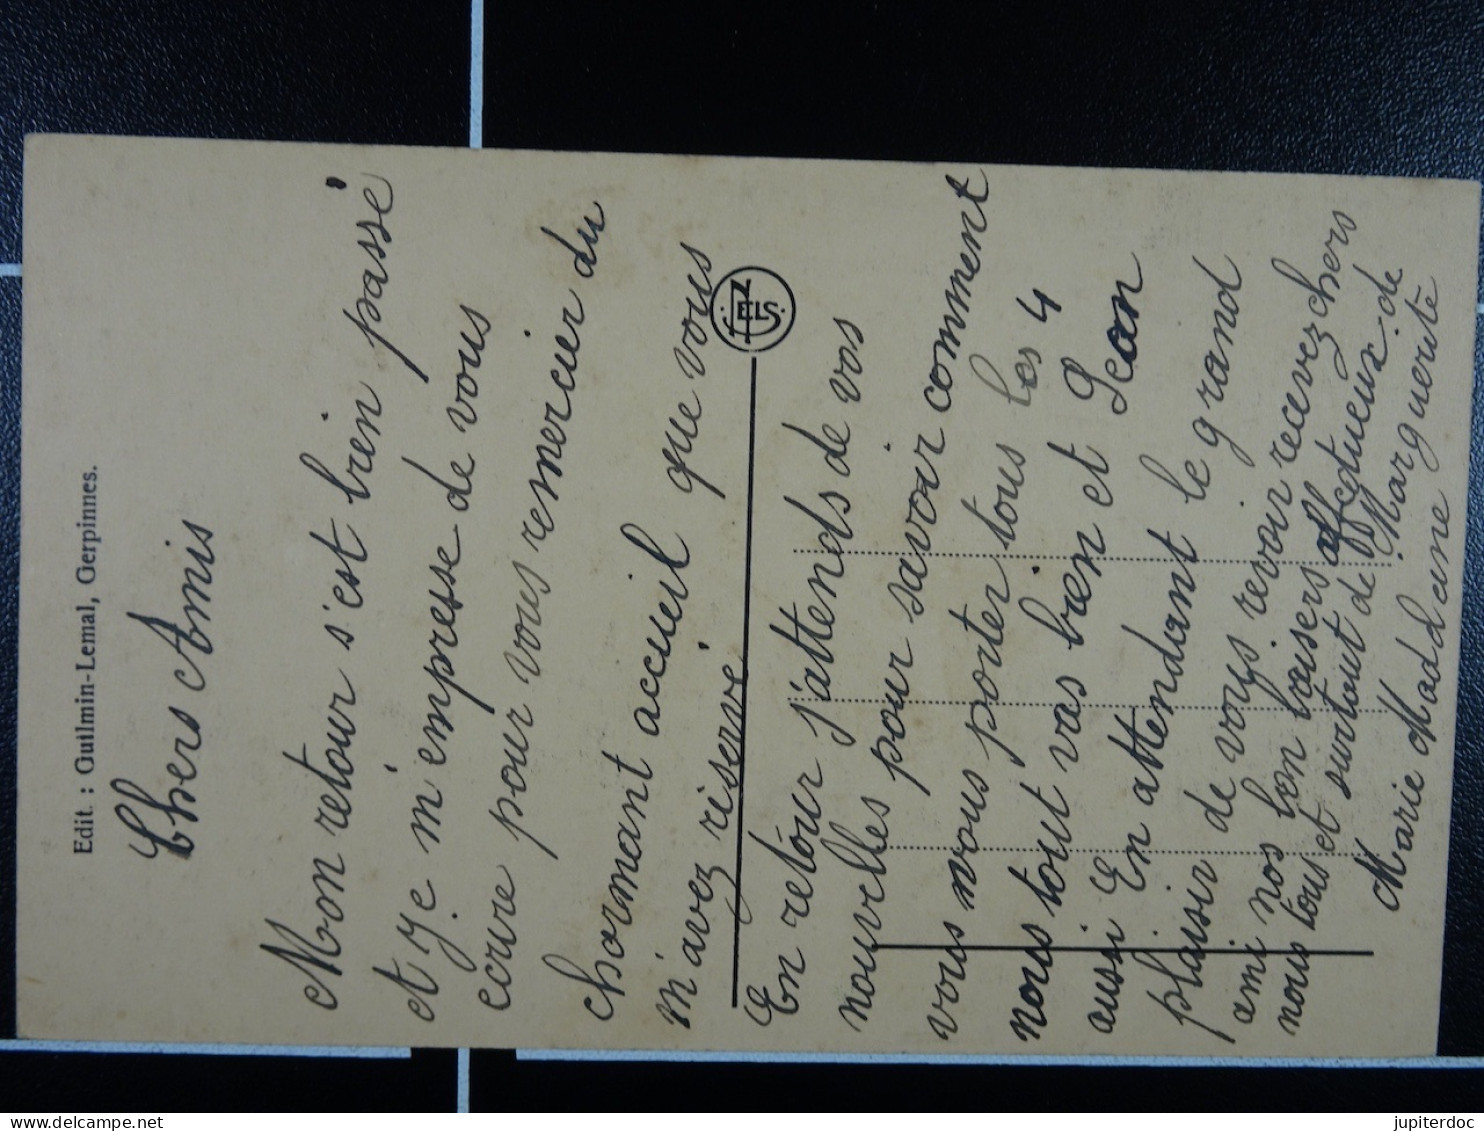 Edit. : Guilmin-Lemal, Gerpinnes.
Chers Amis
Mon retour s'est bien passé
et je m'empresse de vous
ecrire pour vous remercier du
charmant accueil que vous
m'avez réservé
NELS
En retour j'attends de vos
nouvelles pour savoir comment
vous vous porter tous les 4
nous tout vas bien et Jean
aussi En attendant le grand
plaisir de vous revoir recevez chers
ami nos bon baisers affectueux de
nous tous et surtout de Marguerite
Marie Madeleine
jupiterdoc
www.delcampe.net